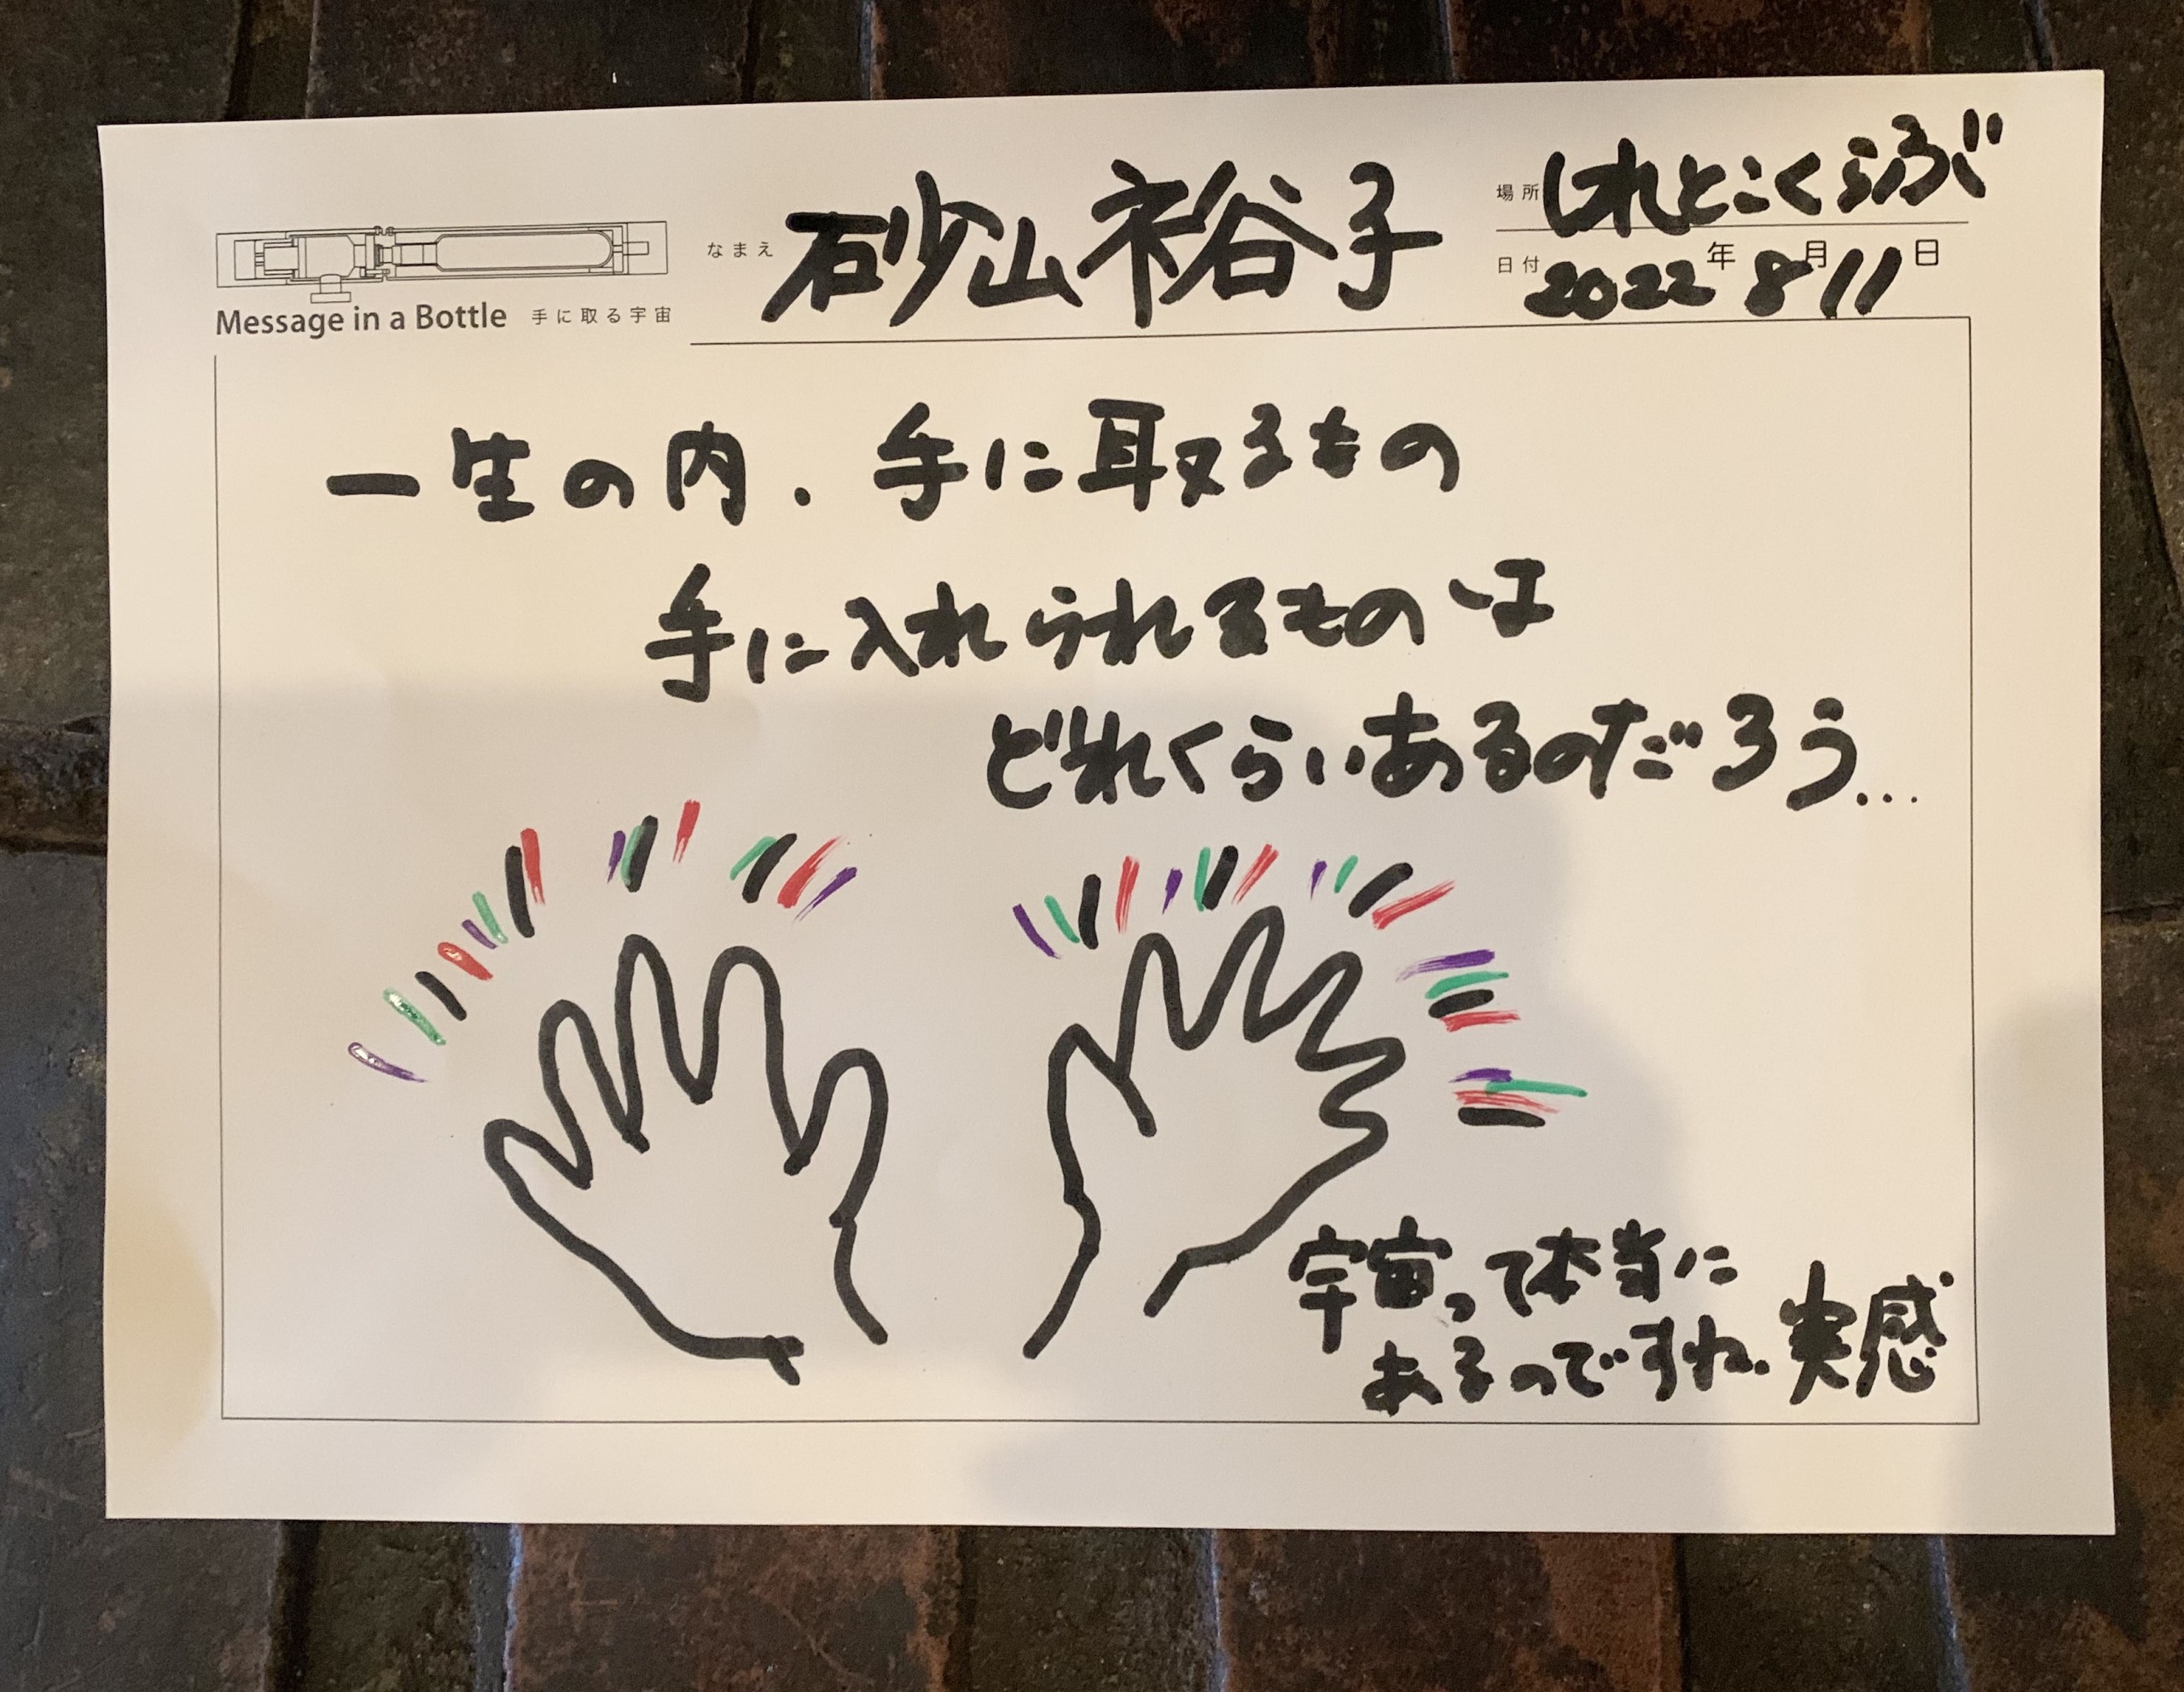 なまえ 砂山裕子
場所 しれとこくらぶ
日付 2022年8月11日
Message in a Bottle 手に取る宇宙
一生の内、手に取るもの
手に入れられるものは
どれくらいあるのだろう...
宇宙って本当に
あるのですね。実感